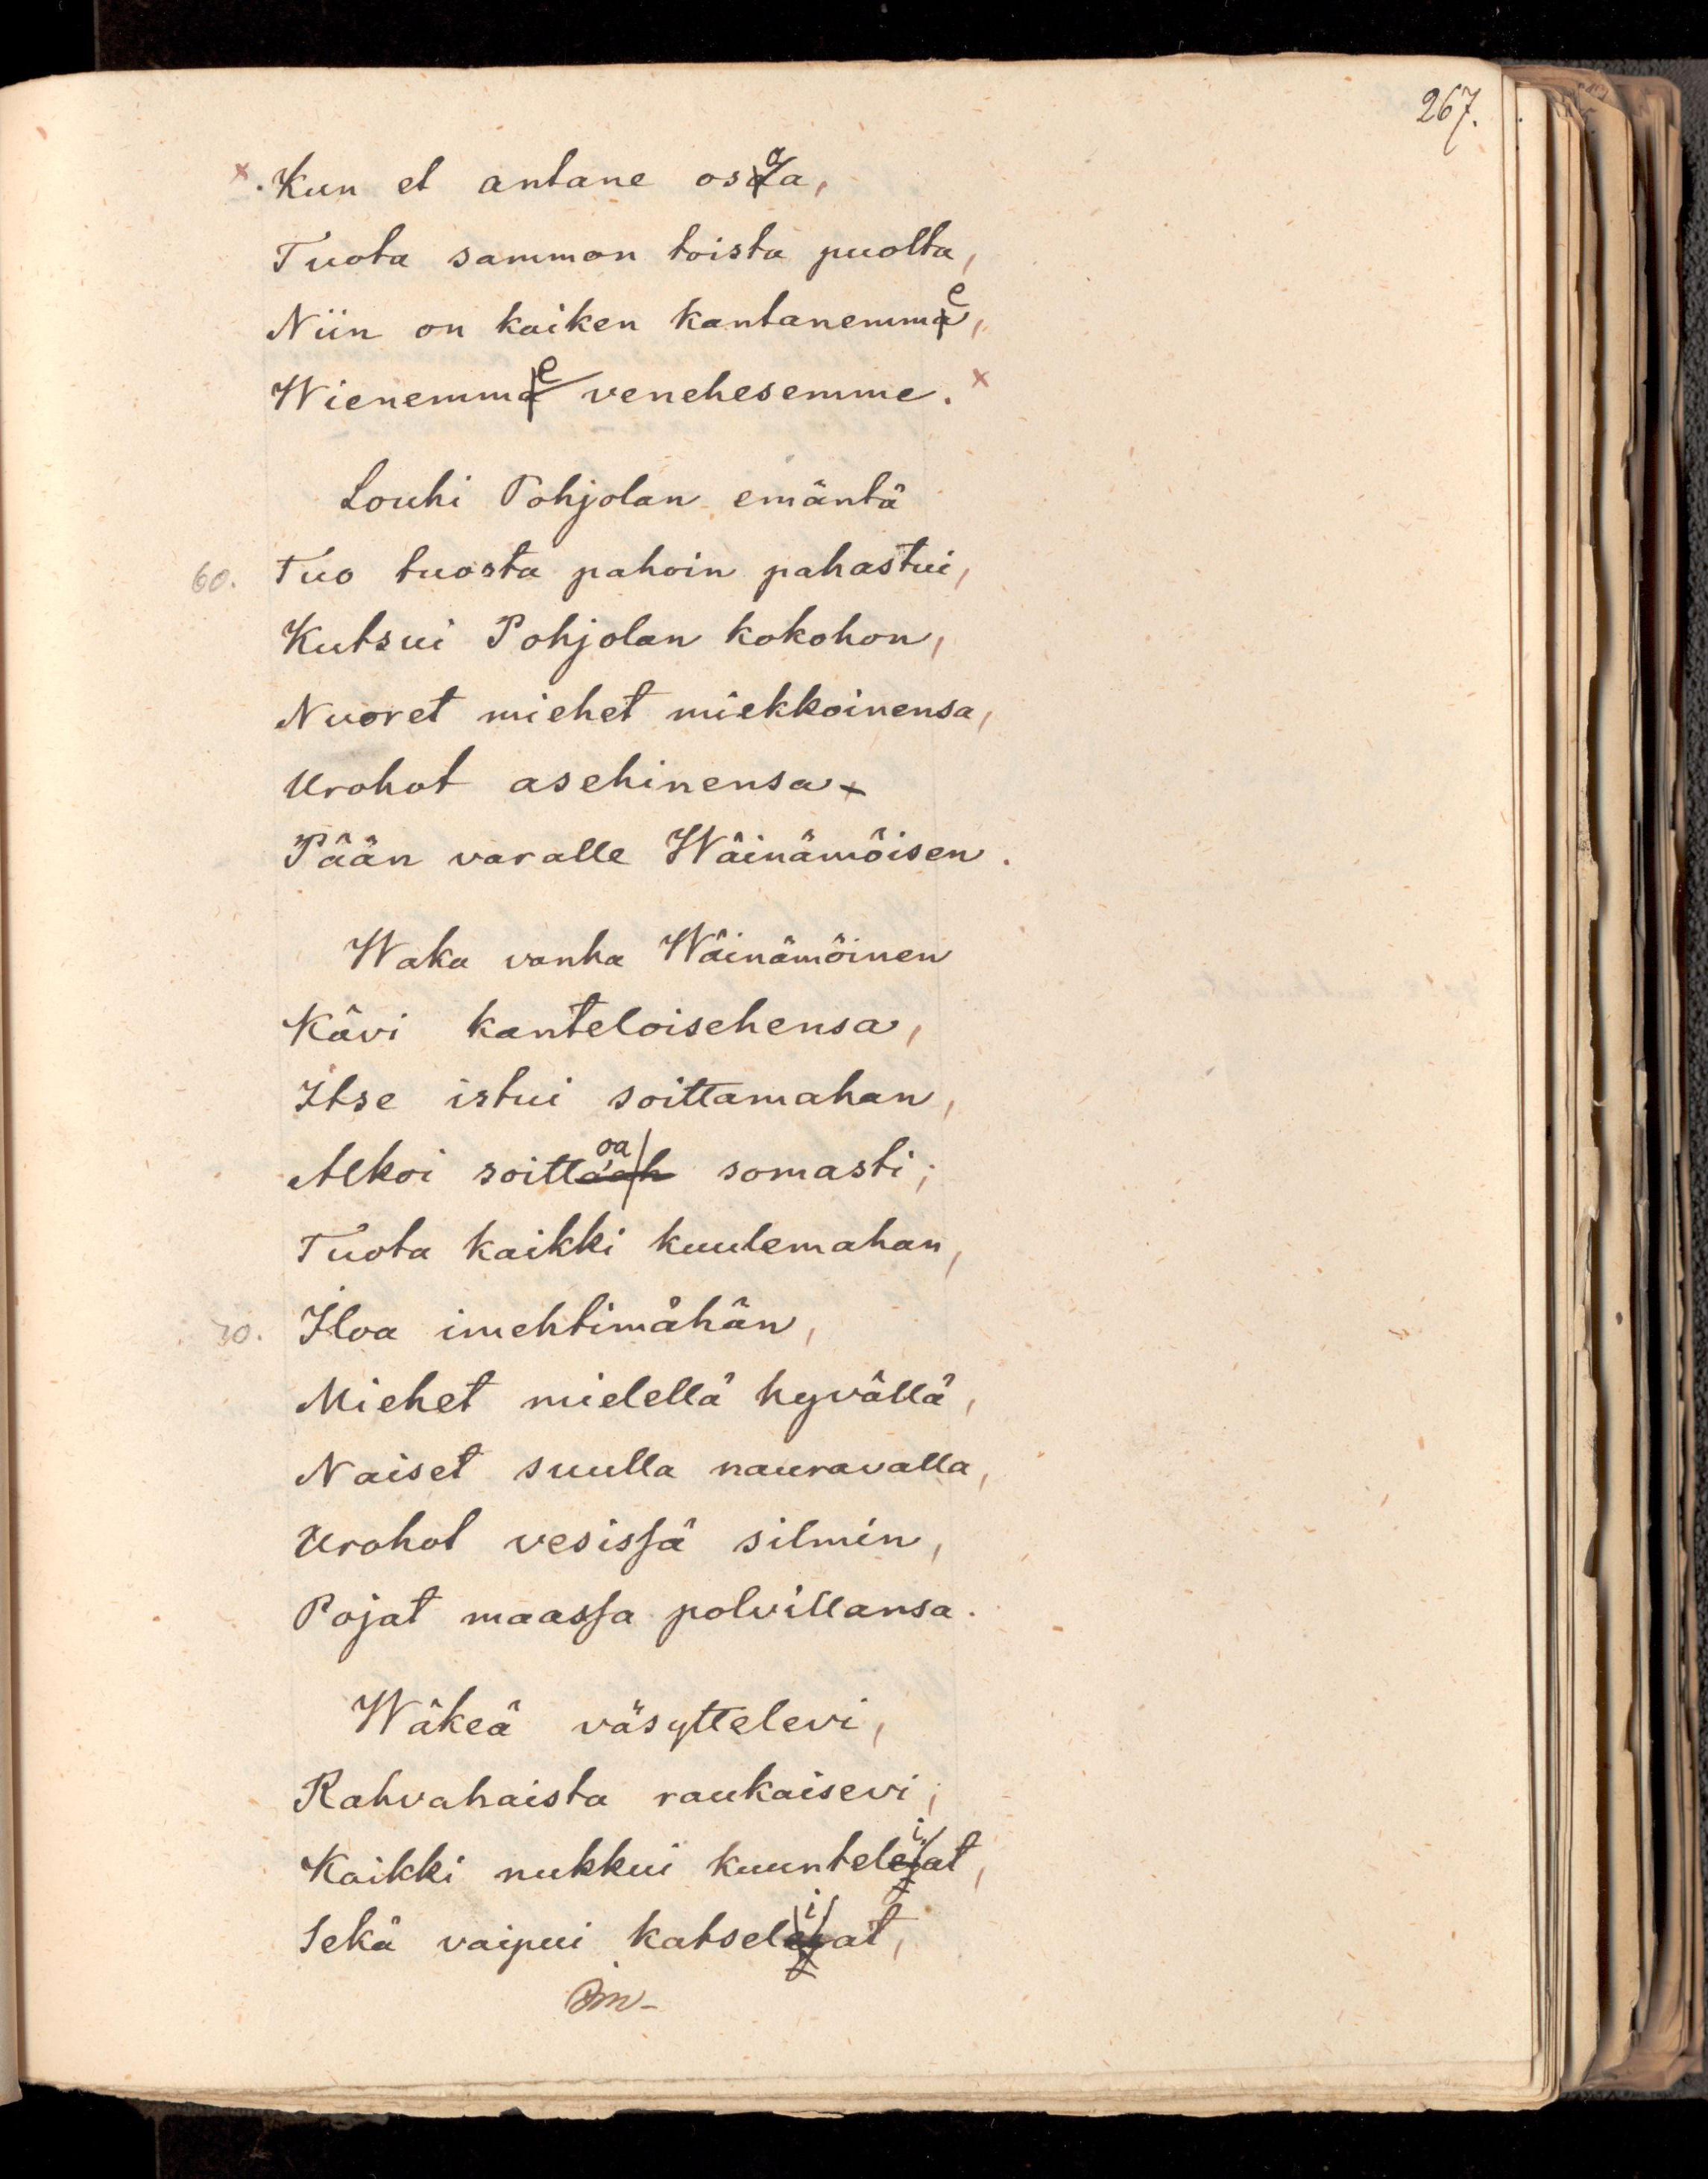 267.
× Kun et antane osaa,
Tuota sammon toista puolta,
Niin on kaiken kantanemme,
Wienemme venehesemme. ×
Louhi Pohjolan emäntä
60. Tuo tuosta pahoin pahastui,
Kutsui Pohjolan kokohon,
Nuoret miehet miekkoinensa,
Urohot asehinensa
Pään varalle Wäinämöisen.
Waka vanha Wäinämöinen
Kävi kanteloisehensa,
Itse istui soittamahan,
Alkoi soittoa somasti;
Tuota kaikki kuulemahan,
70. Iloa imehtimähän,
Miehet mielellä hyvällä,
Naiset suulla nauravalla,
Urohot vesissä silmin,
Pojat maassa polvillansa.
Wäkeä väsyttelevi,
Rahvahaista raukaisevi;
Kaikki nukkui kuunteliat,
Sekä vaipui katseliat,